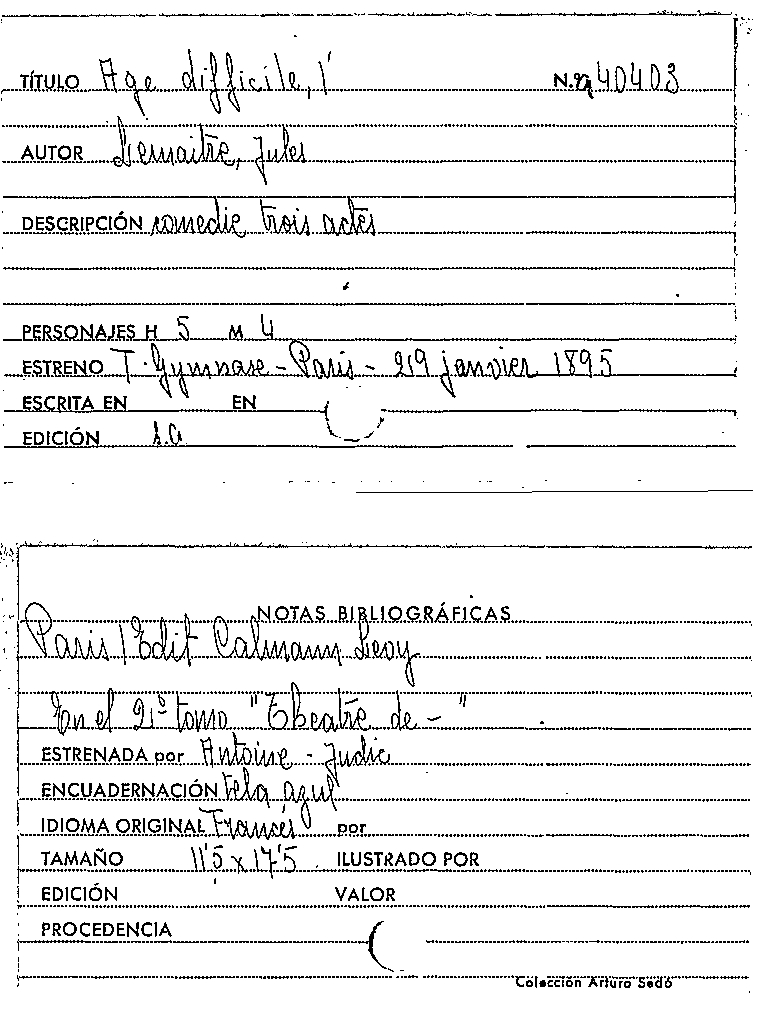 TÍTULO Age difficile, l' N.º 40403
AUTOR Lemaitre, Jules
DESCRIPCIÓN comedie trois actes
PERSONAJES H 5 M 4
ESTRENO T. Gymnase - Paris - 29 janvier 1895
ESCRITA EN EN
EDICIÓN s.a
NOTAS BIBLIOGRÁFICAS
Paris / Edit Calmann Levy
En el 2º tomo "Theatre de - "
ESTRENADA por Antoine - Judic
ENCUADERNACIÓN tela azul
IDIOMA ORIGINAL Francés por
TAMAÑO 11'5 x 17'5 . ILUSTRADO POR
EDICIÓN VALOR
PROCEDENCIA
Colección Arturo Sedó